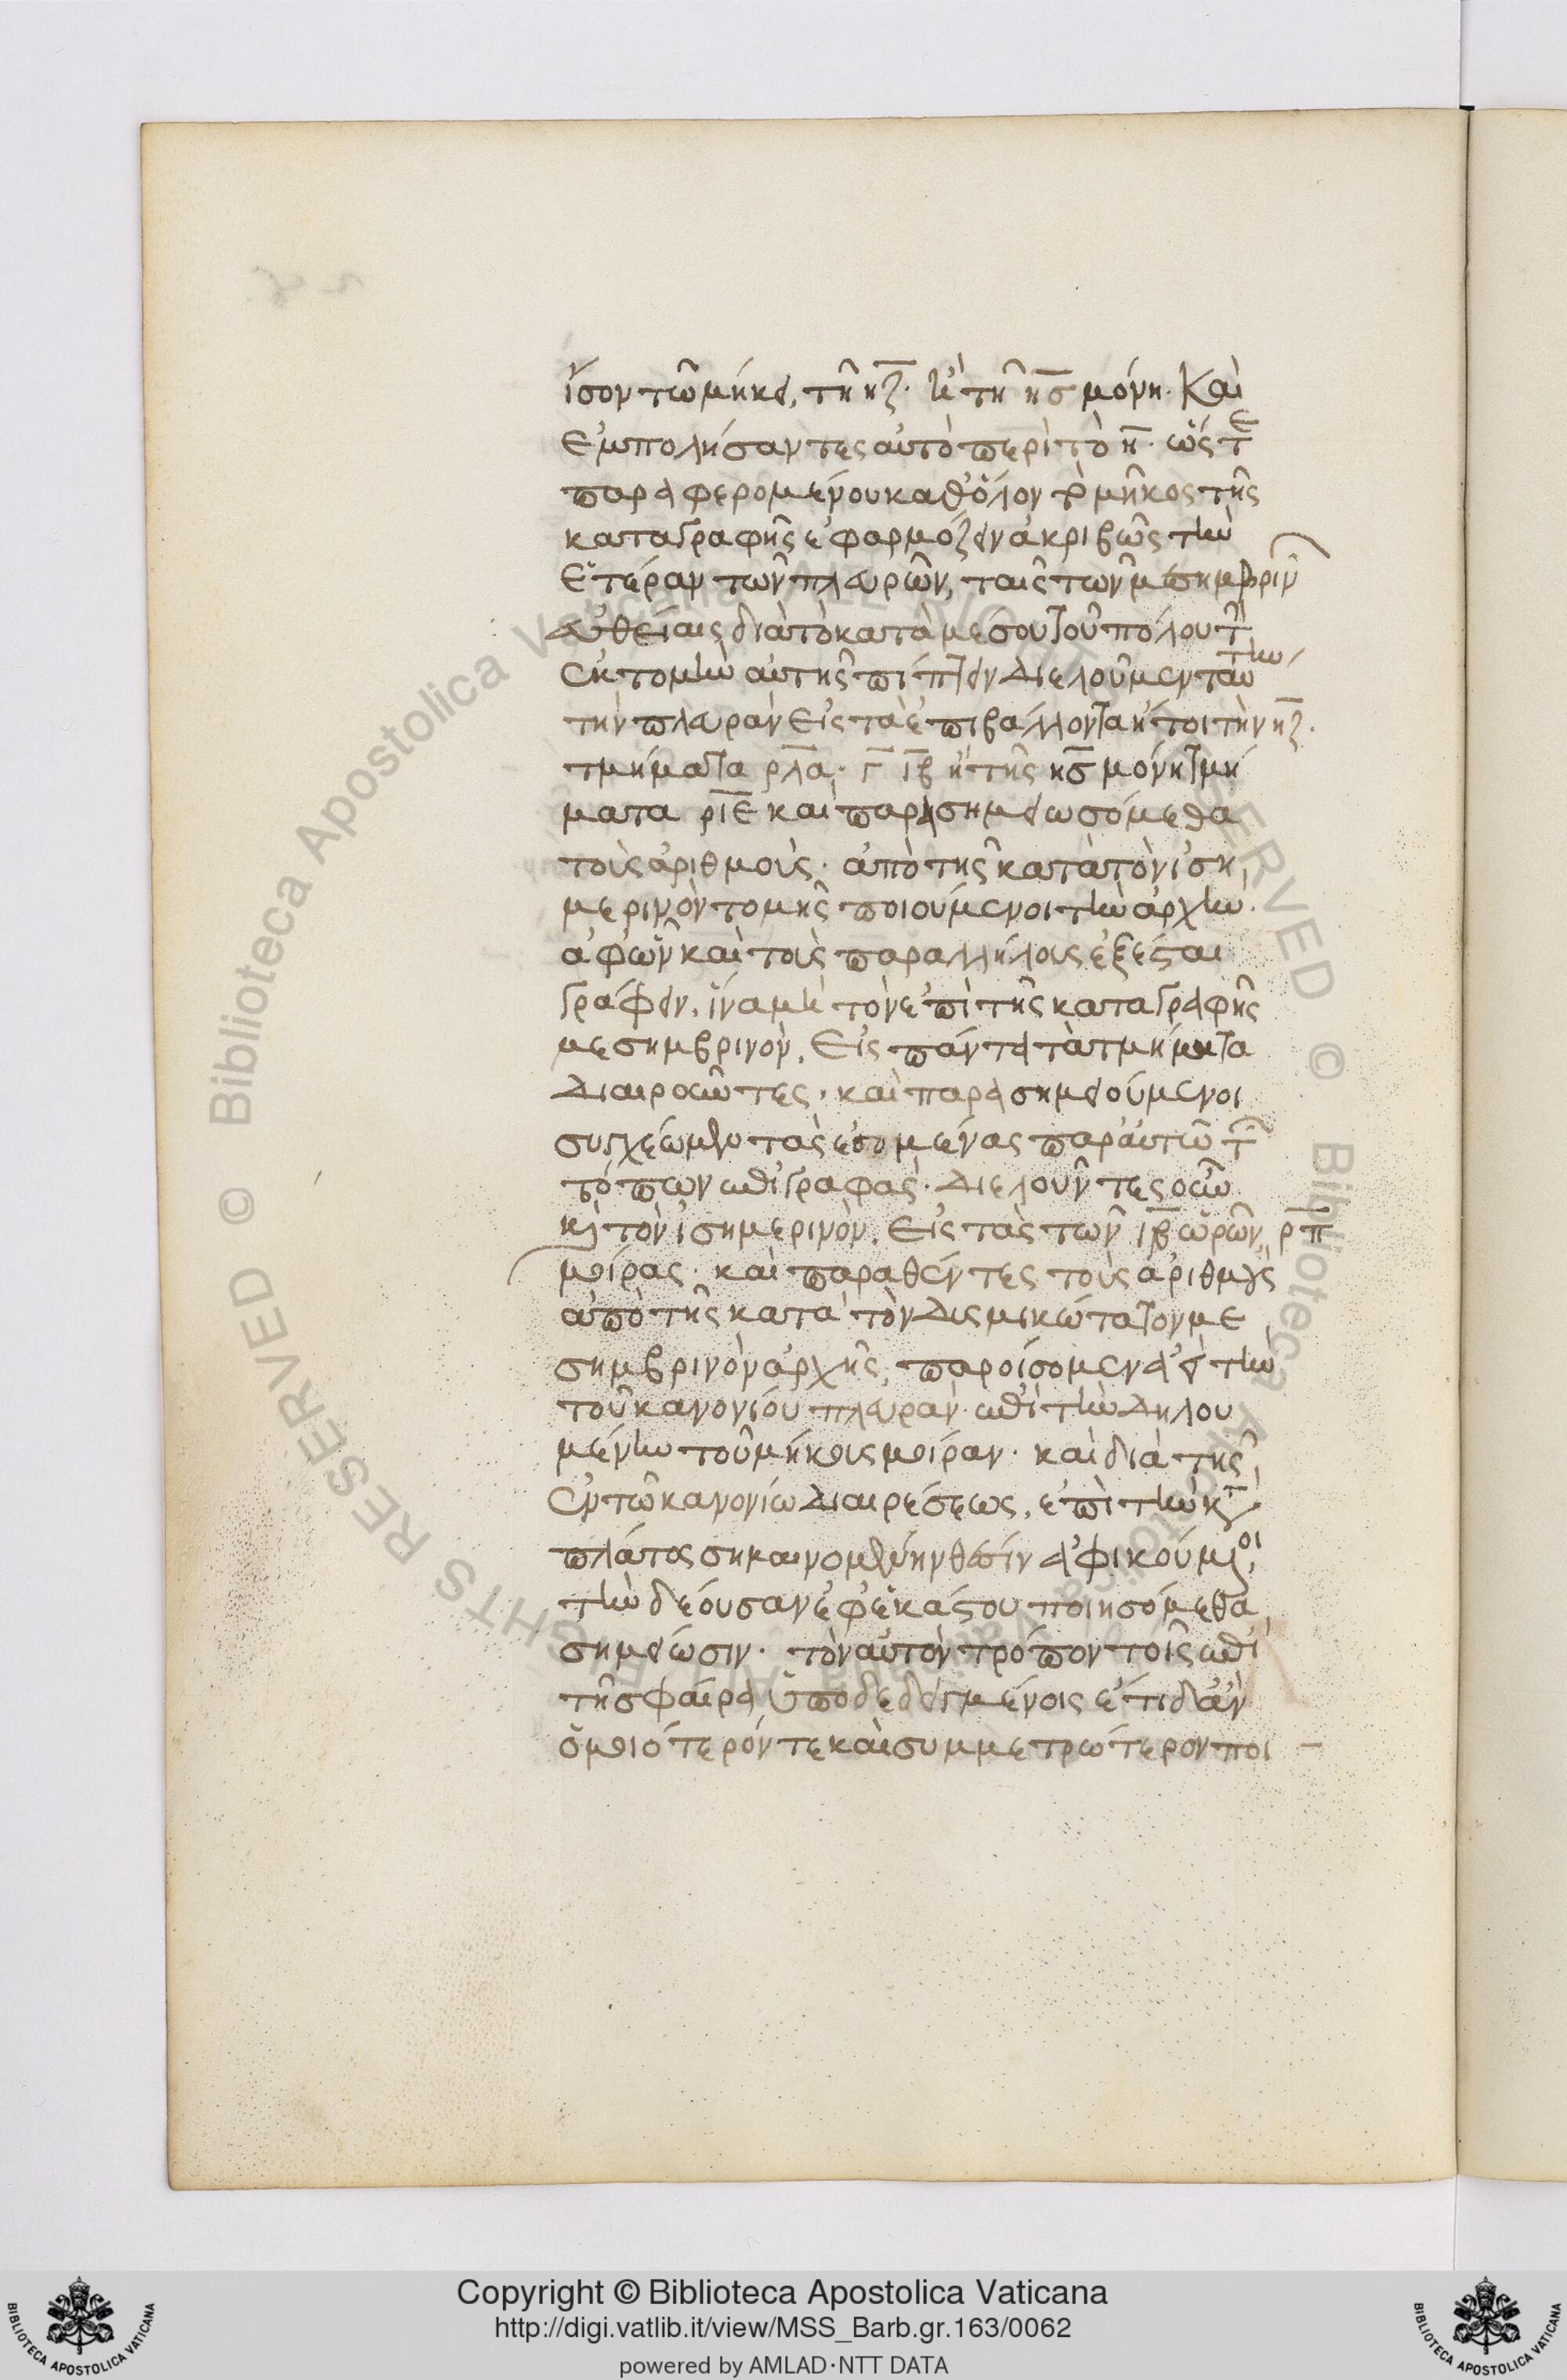 ἴσον τῶ μήκει, τῆ ηζ. ἢ τῆ ησ μόνη. Καὶ
ἐμπολήσαντες αὐτὸ περὶ τὸ η. ὥστε
παραφερομένου καθόλον τὸ μῆκος τῆς
καταγραφῆς ἐφαρμόζειν ἀκριβῶς τὴν
ἑτέραν τῶν πλευρῶν, ταῖς τῶν μεσημβριν
εὐθείαις διὰ τὸ κατὰ μέσου τοῦ πόλου τὴν
ἐκτομὴν αὐτῆς πίπτειν διελοῦμεν ταύτην
τὴν πλευρὰν εἰς τὰ ἐπιβάλλοντα ἤτοι τὴν ηζ.
τμήματα ρλα. γ ιβ ἢ τῆς ησ μόνη τμή
ματα ριε καὶ παρασημειωσόμεθα
τοὺς ἀριθμούς. ἀπὸ τῆς κατὰ τὸν ἰση
μερινὸν τομῆς ποιούμενοι τὴν ἀρχὴν.
ἀφ ὧν καὶ τοὺς παραλλήλους ἐξέσται
γράφειν, ἵνα μὴ τὸν ἐπὶ τῆς καταγραφῆς
μεσημβρινὸν, εἰς πάντα τὰ τμήματα
διαιροῦντες, καὶ παρασημειούμενοι
συγχέωμεν τὰς ἐσομένας παρ αὐτῶ τῶν
τόπων ἐπιγραφάς. διελοῦντες οὖν
καὶ τὸν ἰσημερινὸν, εἰς τὰς τῶν ιβ ὡρῶν, ρπ
μοίρας. καὶ παραθέντες τοὺς ἀριθμοὺς
ἀπὸ τῆς κατὰ τὸν δυσμικώτατον με
σημβρινὸν ἀρχῆς, παροίσομεν ἀεὶ τὴν
τοῦ κανονίου πλευρὰν ἐπὶ τὴν δηλου
μένην τοῦ μήκους μοίραν. καὶ διὰ τῆς
ἐν τῶ κανονίω διαιρέσεως, ἐπὶ τὴν κατὰ
πλάτος σημαινομένην θέσιν ἀφικούμενοι,
τὴν δέουσαν ἐφ ἑκάστου ποιησόμεθα
σημείωσιν. τὸν αὐτὸν τρόπον τοῖς ἐπὶ
τῆς σφαίρας ὑποδεδειγμένοις ἔτι δ ἂν
ὁμοιότερόν τε καὶ συμμετρώτερον ποι
Copyright © Biblioteca Apostolica Vaticana
http://digi.vatlib.it/view/MSS_Barb.gr.163/0062
powered by AMLAD·NTT DATA